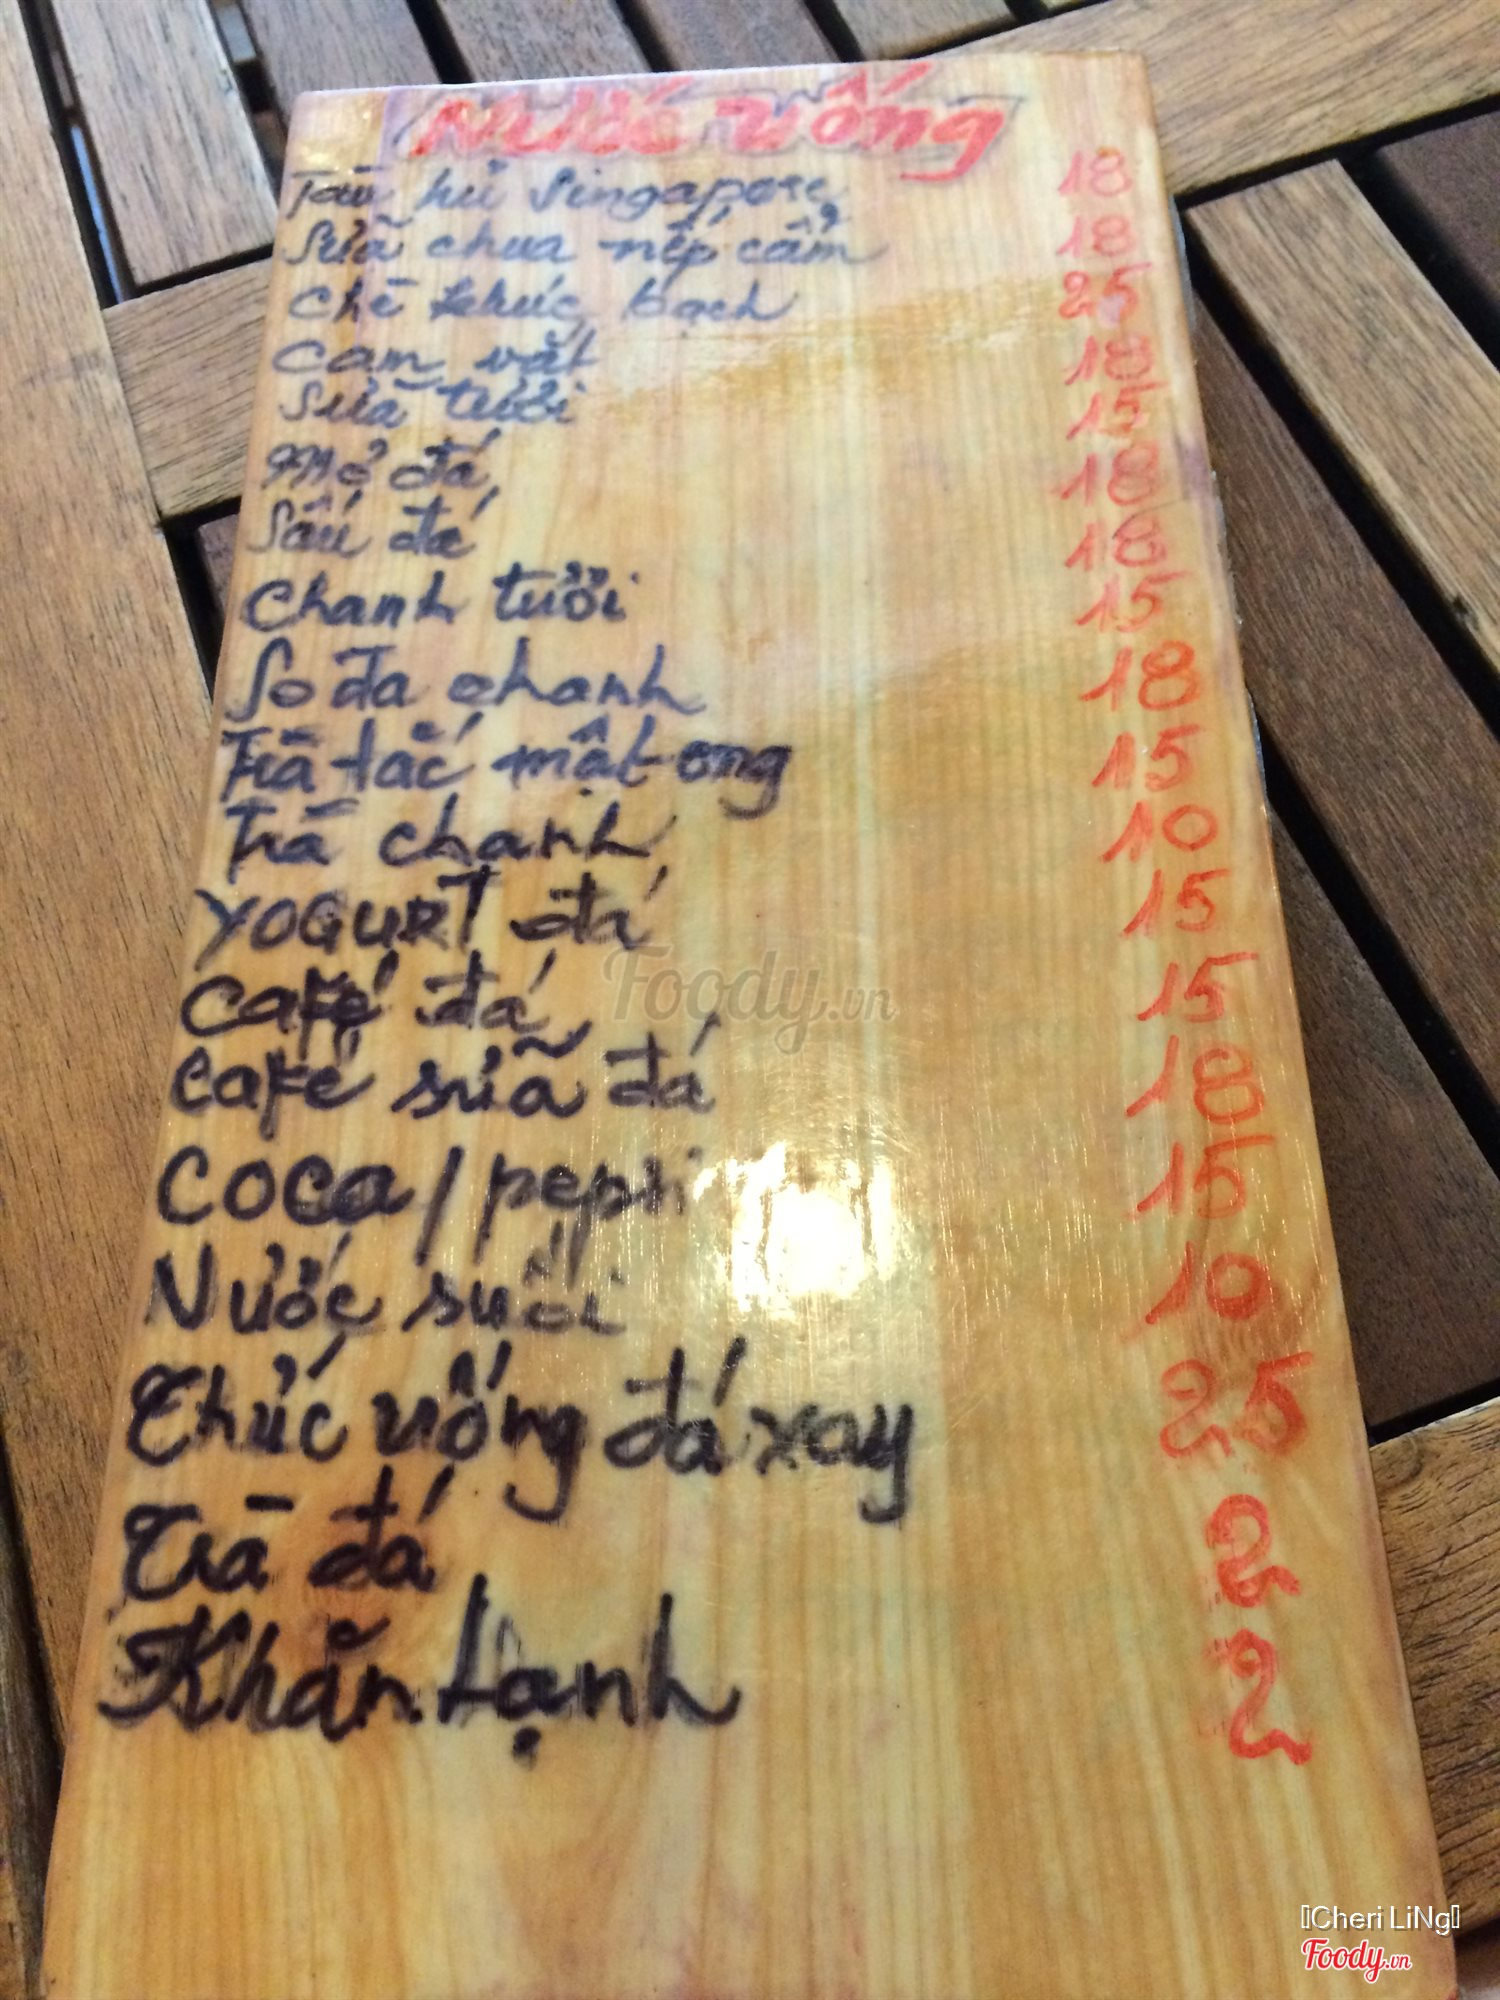 Nước uống
Tàu hủ Singapore 18
Sữa chua nếp cẩm 18
Chè khúc bạch 25
Cam vắt 18
Sữa tươi 15
Mơ đá 18
Sấu đá 18
Chanh tươi 15
Sođa chanh 18
Trà tắc mật ong 15
Trà chanh 10
YOGURT đá 15
Café đá 15
Café sữa đá 18
Coca/pepsi 15
Nước suối 10
Thức uống đá xay 25
Trà đá 2
Khăn lạnh 2
Foody.vn
Cheri LiNg
Foody.vn